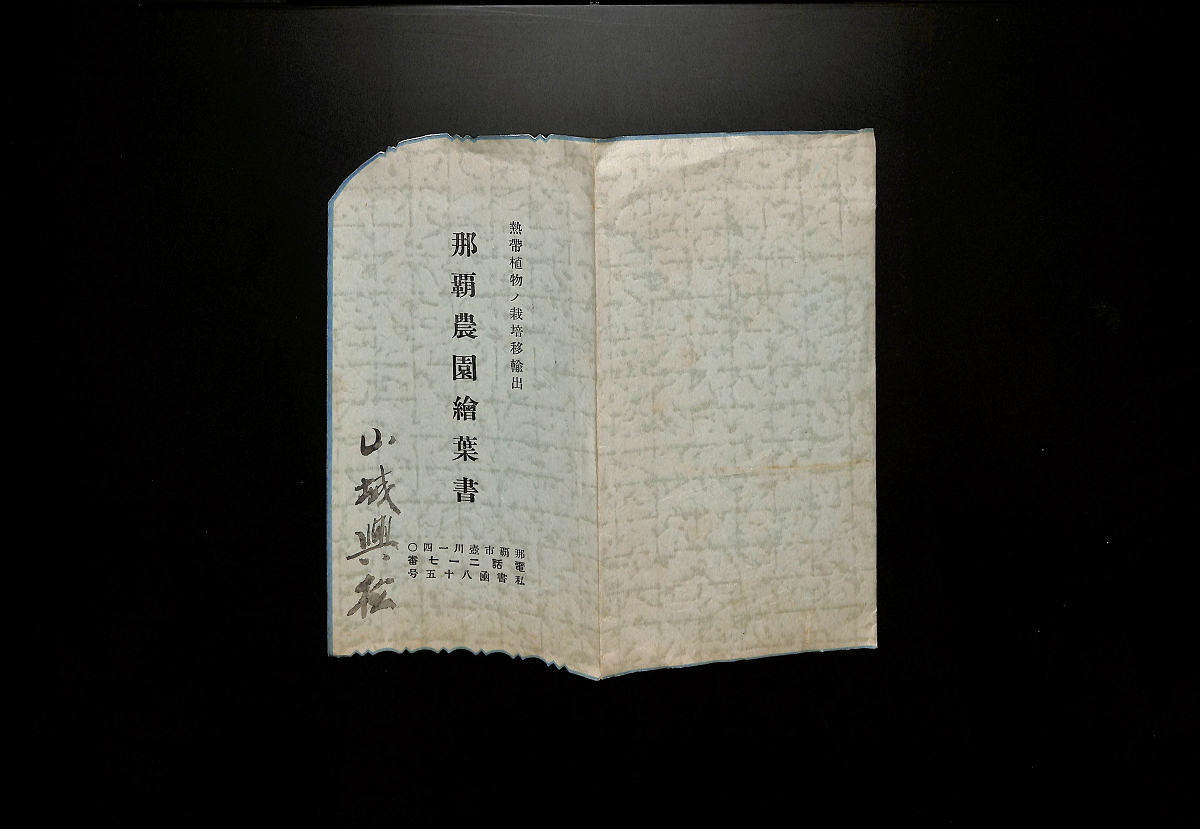 熱帶植物ノ栽培移輸出
那覇農園繪葉書
那覇市壺川一四〇
電話二一七番
私書函八十五号
山城興松